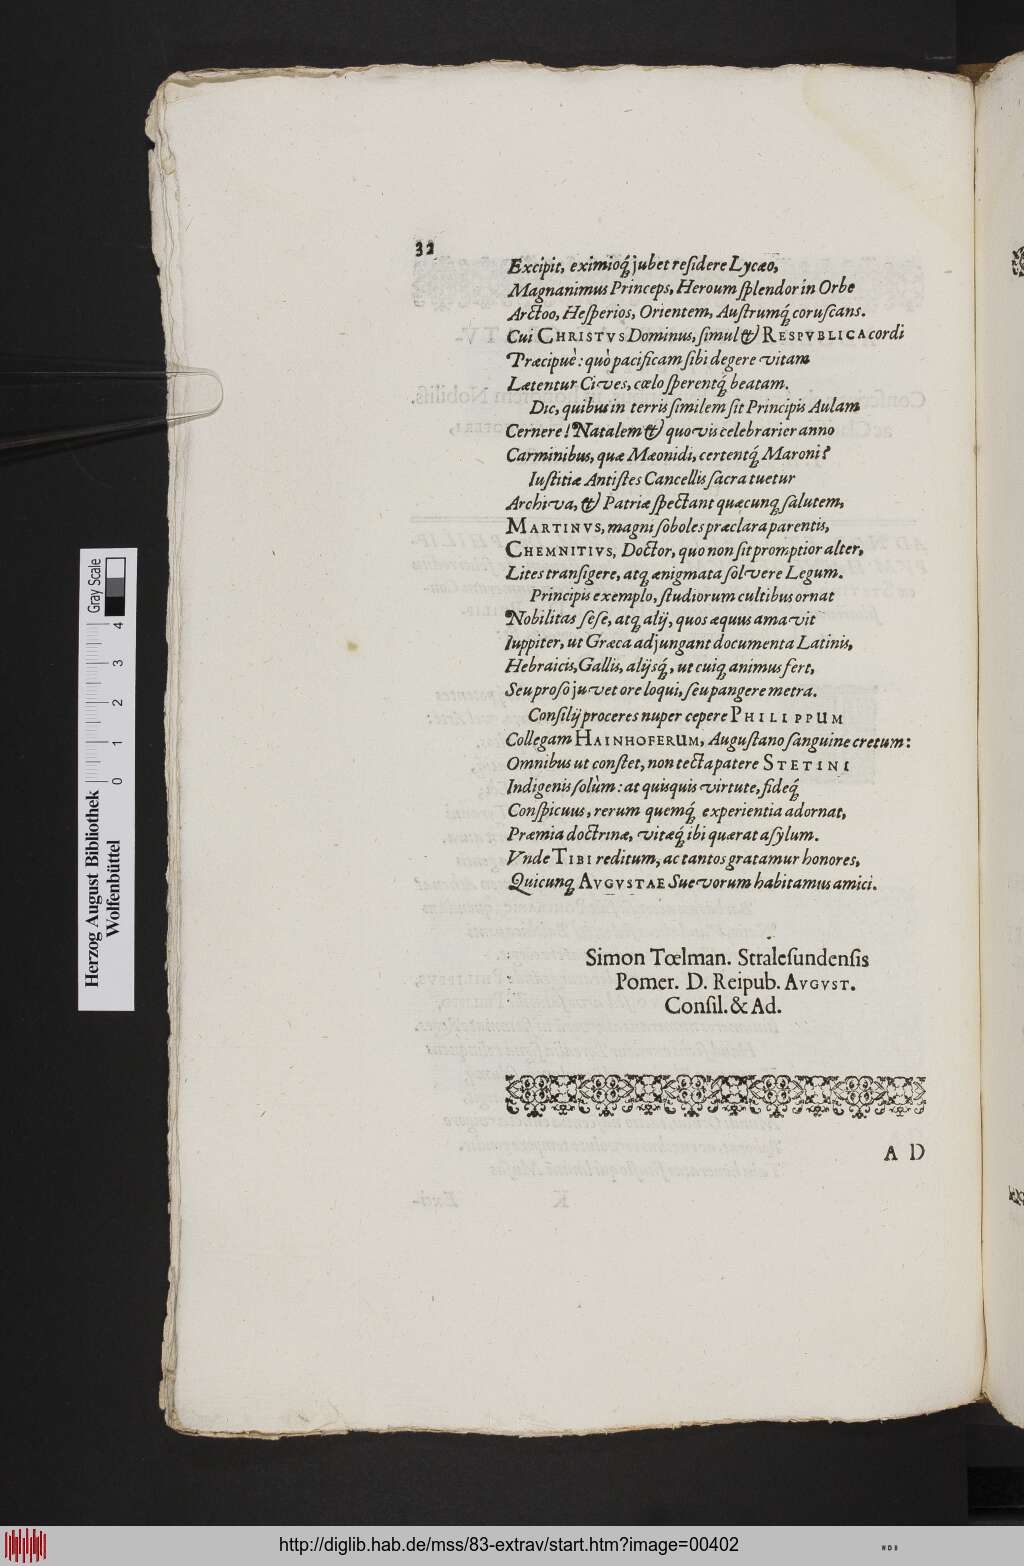 32
Excipit, eximioq́; jubet reſidere Lycæo,
Magnanimus Princeps, Heroum ſplendor in Orbe
Arctoo, Heſperios, Orientem, Auſtrumq́; coruſcans.
Cui CHRISTVS Dominus, ſimul & RESPVBLICA cordi
Præcipuè: quò pacificam ſibi degere vitam
Lætentur Cives, cœlo ſperentq́; beatam.
Dic, quibus in terris ſimilem ſit Principis Aulam
Cernere! Natalem & quovis celebrarier anno
Carminibus, quæ Mæonidi, certentq́; Maroni?
Iuſtitiæ Antiſtes Cancellis ſacra tuetur
Archiva, & Patriæ ſpectant quæcunq; ſalutem,
MARTINVS, magni ſoboles præclara parentis,
CHEMNITIVS, Doctor, quo non ſit promptior alter,
Lites tranſigere, atq; ænigmata ſolvere Legum.
Principis exemplo, ſtudiorum cultibus ornat
Nobilitas ſeſe, atq; alij, quos æquus amavit
Iuppiter, ut Græca adjungant documenta Latinis,
Hebraicis, Gallis, alijsq́;, ut cuiq; animus fert,
Seu proſo juvet ore loqui, ſeu pangere metra.
Conſilij proceres nuper cepere PHILIPPUM
Collegam HAINHOFERUM, Auguſtano ſanguine cretum:
Omnibus ut conſtet, non tecta patere STETINI
Indigenis ſolùm: at quisquis virtute, fideq́;
Conſpicuus, rerum quemq́; experientia adornat,
Præmia doctrinæ, vitæq́; ibi quærat aſylum.
Vnde TIBI reditum, ac tantos gratamur honores,
Quicunq; AVGVSTAE Suevorum habitamus amici.
Simon Tœlman. Straleſundenſis
Pomer. D. Reipub. AVGVST.
Conſil. & Ad.
A D
Herzog August Bibliothek
Wolfenbüttel
0 1 2 3 4
Gray Scale
http://diglib.hab.de/mss/83-extrav/start.htm?image=00402